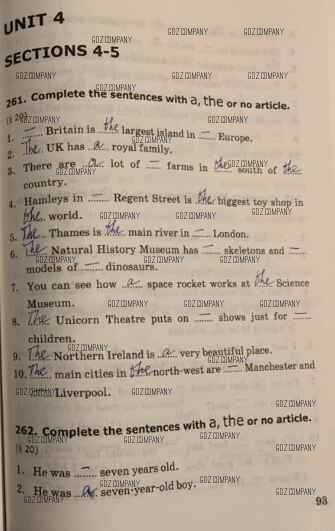 UNIT 4
SECTIONS 4-5
261. Complete the sentences with a, the or no article.
[t 20]
1. — Britain is the largest island in — Europe.
2. The UK has a royal family.
3. There are a lot of — farms in the south of the
country.
4. Hamleys in — Regent Street is the biggest toy shop in
the world.
5. The Thames is the main river in — London.
6. The Natural History Museum has — skeletons and —
models of — dinosaurs.
7. You can see how a space rocket works at the Science
Museum.
8. The Unicorn Theatre puts on — shows just for —
children.
9. The Northern Ireland is a very beautiful place.
10. The main cities in the north-west are — Manchester and
— Liverpool.
262. Complete the sentences with a, the or no article.
[t 20]
1. He was — seven years old.
2. He was a seven-year-old boy.
93
GDZ.COMPANY